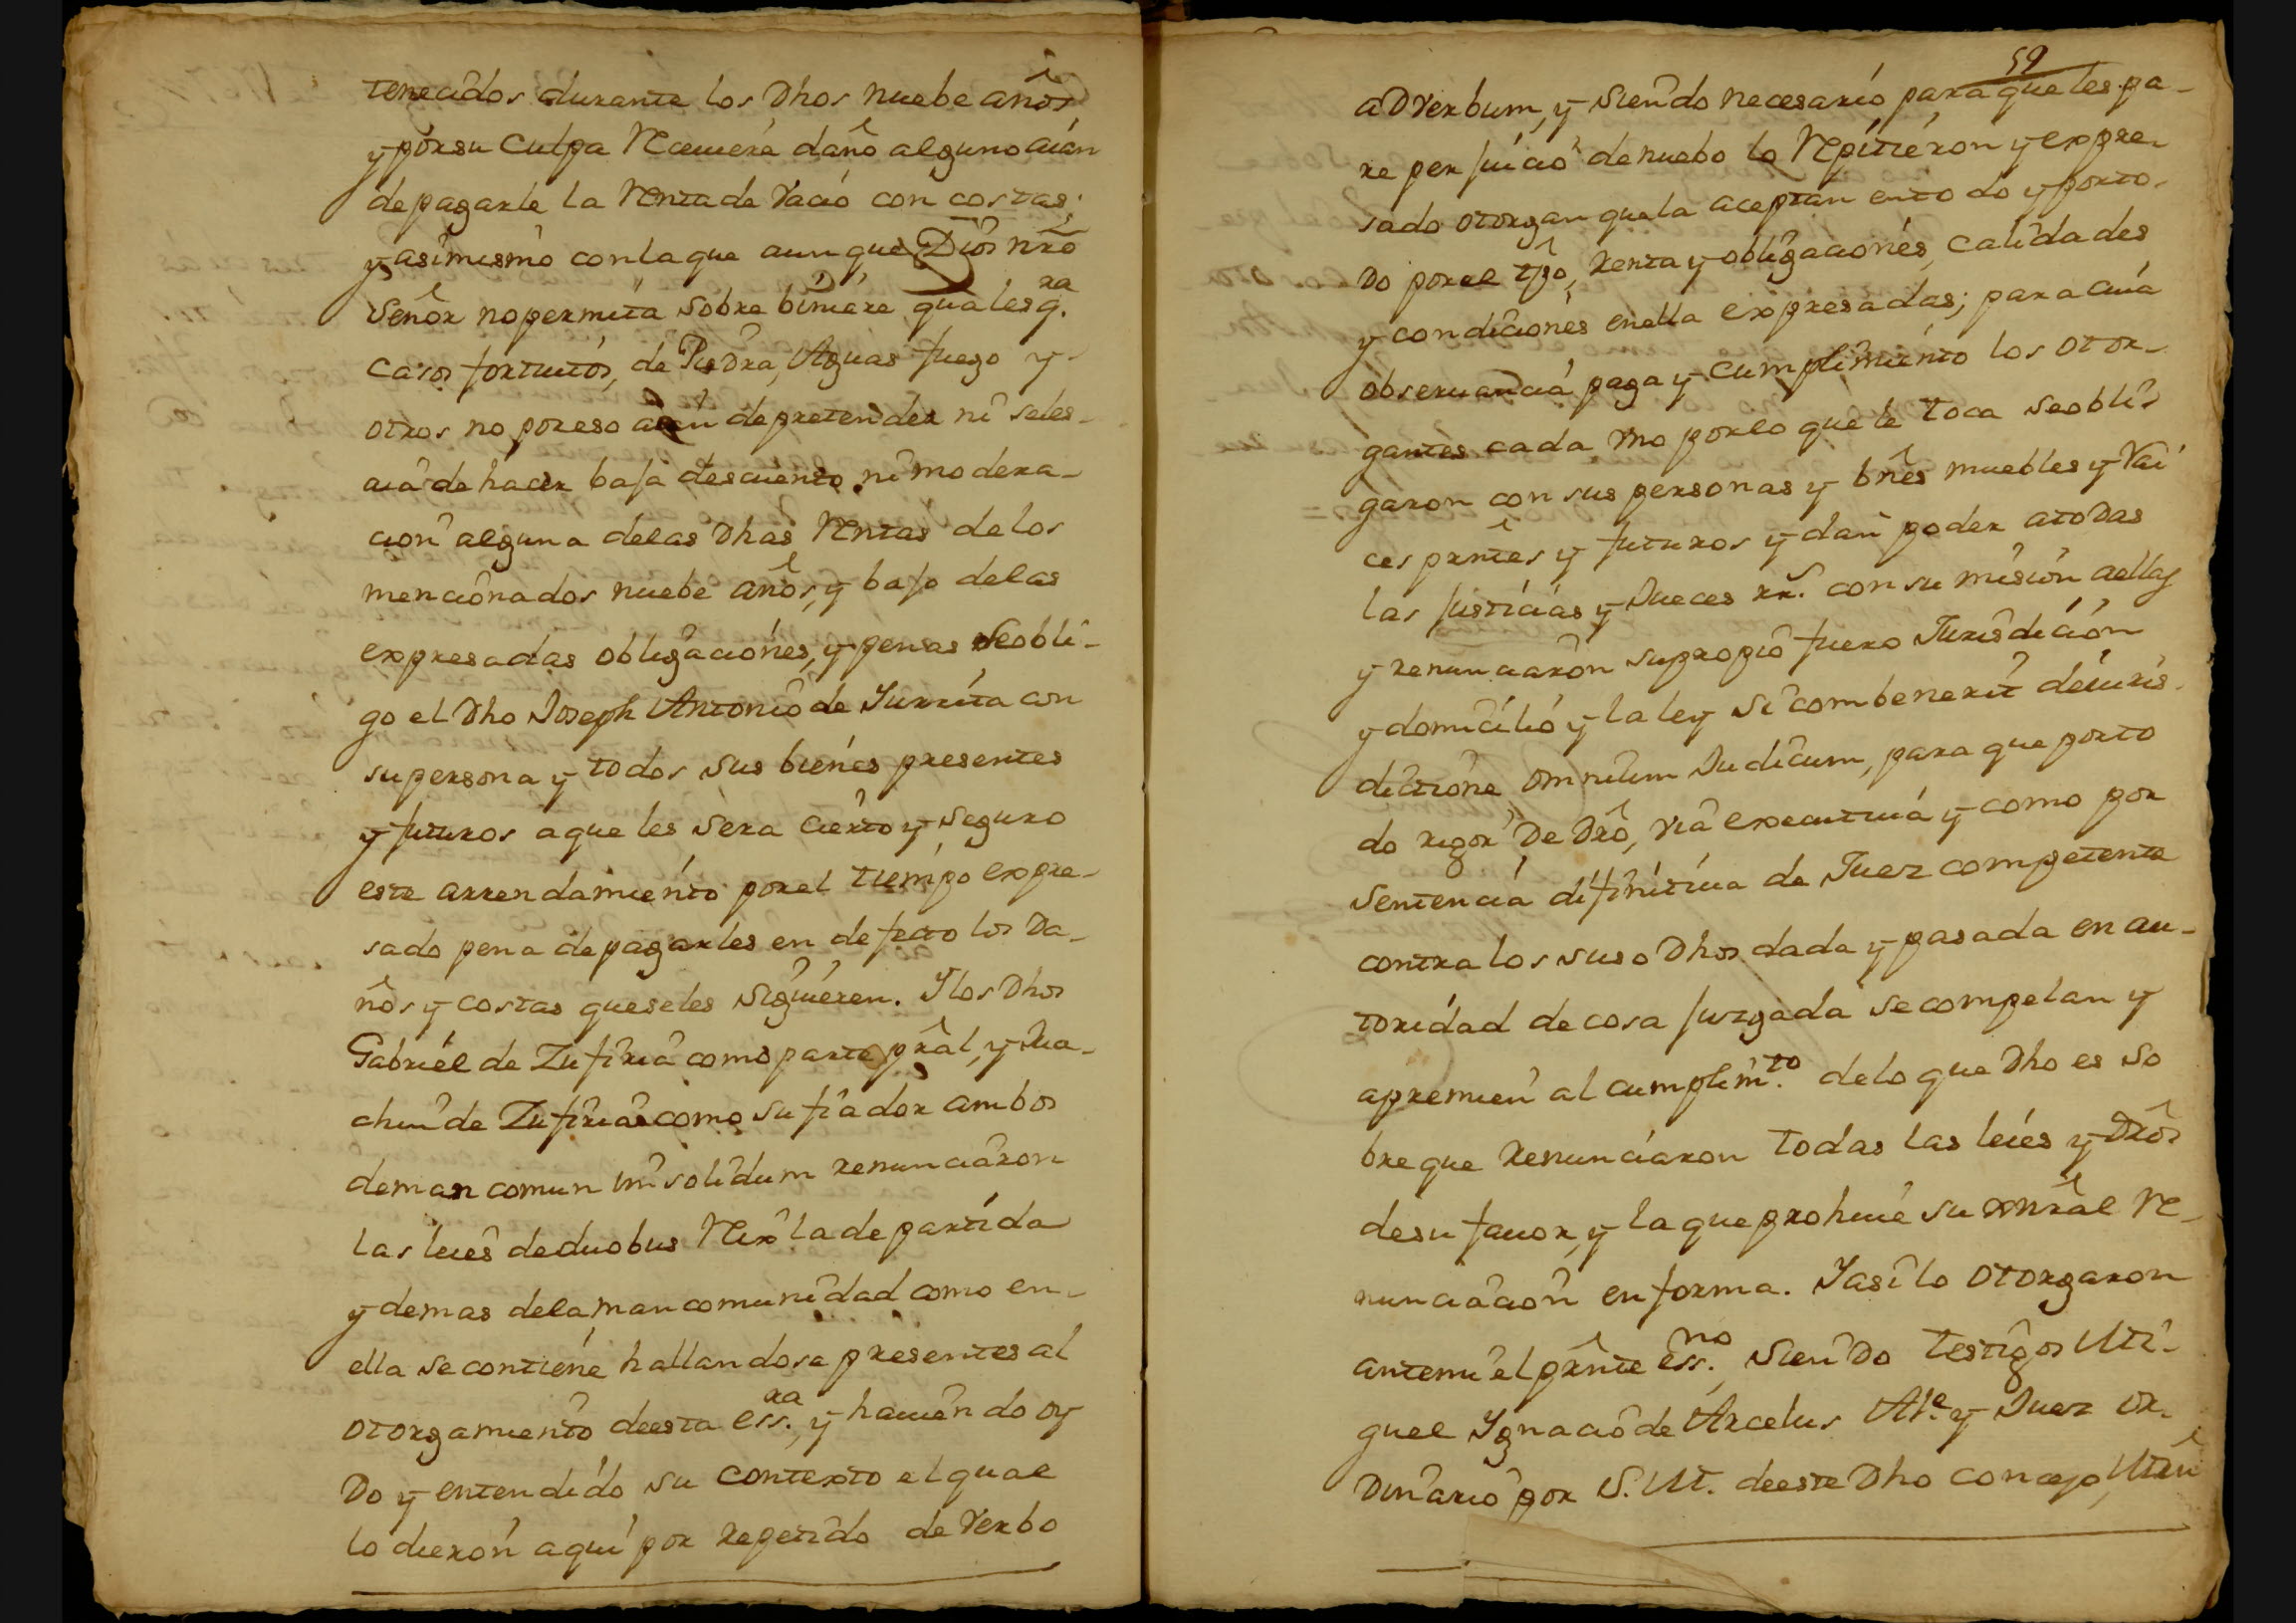 tenecidos durante los Dhos nuebe anôs
y por su culpa Recivere danô alguno aian
de pagarle la Renta de vacio con costas;
y asimismo con la que aunque Dios nrô
Senôr no permita sobre biniere qualesq.ra
casos fortuitos, de Piedra, Aguas fuego y
otros no por eso aian de pretender ni seles
aia de hacer baja descuento ni modera-
cion alguna de las Dhas Rentas de los
mencionados nuebe anôs, y bajo de las
expresadas obligaciones, y penas Seobli-
go el Dho Joseph Antonio de Iurrita con
su persona y todos sus bienes presentes
y futuros a que les sera cierto y seguro
este arrendamiento por el tiempo expre-
sado pena de pagarles en defecto los Da-
nôs y costas que seles siguieren. Y los Dhos
Gabriel de Zufiria como parte prâl, y Jua-
chin de Zufiria como su fiador ambos
de man comun in solidum renunciaron
las leies de duobus Rex la de partida
y demas de la man comunidad como en-
ella se contiene hallandose presentes al
otorgamiento de esta ess.ra y haviendo oy
Do y entendido su contexto el qual
lo dieron aqui por repetido de Verbo
59
aDverbum, y siendo necesario para que les pa-
re perjuicio de nuebo lo Repitieron y expre-
sado otorgan que la aceptan en todo y porto-
Do por el tpô, renta y obligaciones, calidades
y condiciones en ella expresadas; para cuia
observancia paga y cumplimiento los otor-
gantes cada vno por lo que le toca seobli-
garon con sus personas y bnês muebles y Rai
ces prntês y futuros y dan poder a toDas
las justicias y Jueces rr.s con sumision aellas
y renunciaron su propio fuero Jurisdicion
y domicilio y la ley si combenerit de iuris-
dictione omnium Judicum, para que porto
do rigor De Drô, via executiva y como por
sentencia difinitiva de Juez competente
contra los suso Dhos dada y pasada en au-
toridad de cosa juzgada se compelan y
apremien al cumplim.to de lo que Dho es so
bre que renunciaron todas las leies y Drôs
de su favor, y la que prohive su gnrâl Re-
nunciacion en forma. Y asi lo otorgaron
ante mi el prnte ess.no siendo testigos Mi-
guel Ygnacio de Arcelus Al.e y Juez or-
Dinario por S. M. de este Dho concejo,